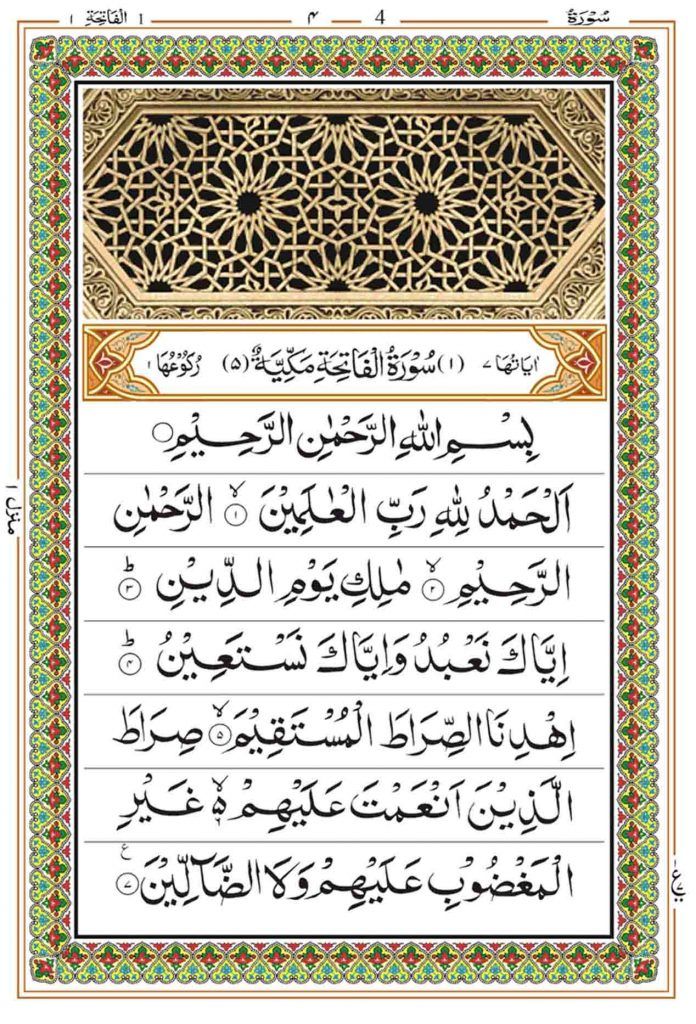 سُوْرَةُ 4 ۴ الْفَاتِحَةِ 1 ۱
اٰيَاتُهَا ٧ (١) سُوْرَةُ الْفَاتِحَةِ مَكِّيَّةٌ (٥) رُكُوْعُهَا ١
بِسْمِ اللهِ الرَّحْمٰنِ الرَّحِيْمِ ۝
اَلْحَمْدُ لِلّٰهِ رَبِّ الْعٰلَمِيْنَ ۙ﴿١﴾ الرَّحْمٰنِ
الرَّحِيْمِ ۙ﴿٢﴾ مٰلِكِ يَوْمِ الدِّيْنِ ؕ﴿٣﴾
اِيَّاكَ نَعْبُدُ وَاِيَّاكَ نَسْتَعِيْنُ ؕ﴿٤﴾
اِهْدِنَا الصِّرَاطَ الْمُسْتَقِيْمَ ۙ﴿٥﴾ صِرَاطَ
الَّذِيْنَ اَنْعَمْتَ عَلَيْهِمْ ۙ۬ۦ غَيْرِ
الْمَغْضُوْبِ عَلَيْهِمْ وَلَا الضَّآلِّيْنَ ﴿٧﴾ ع
منزل ١